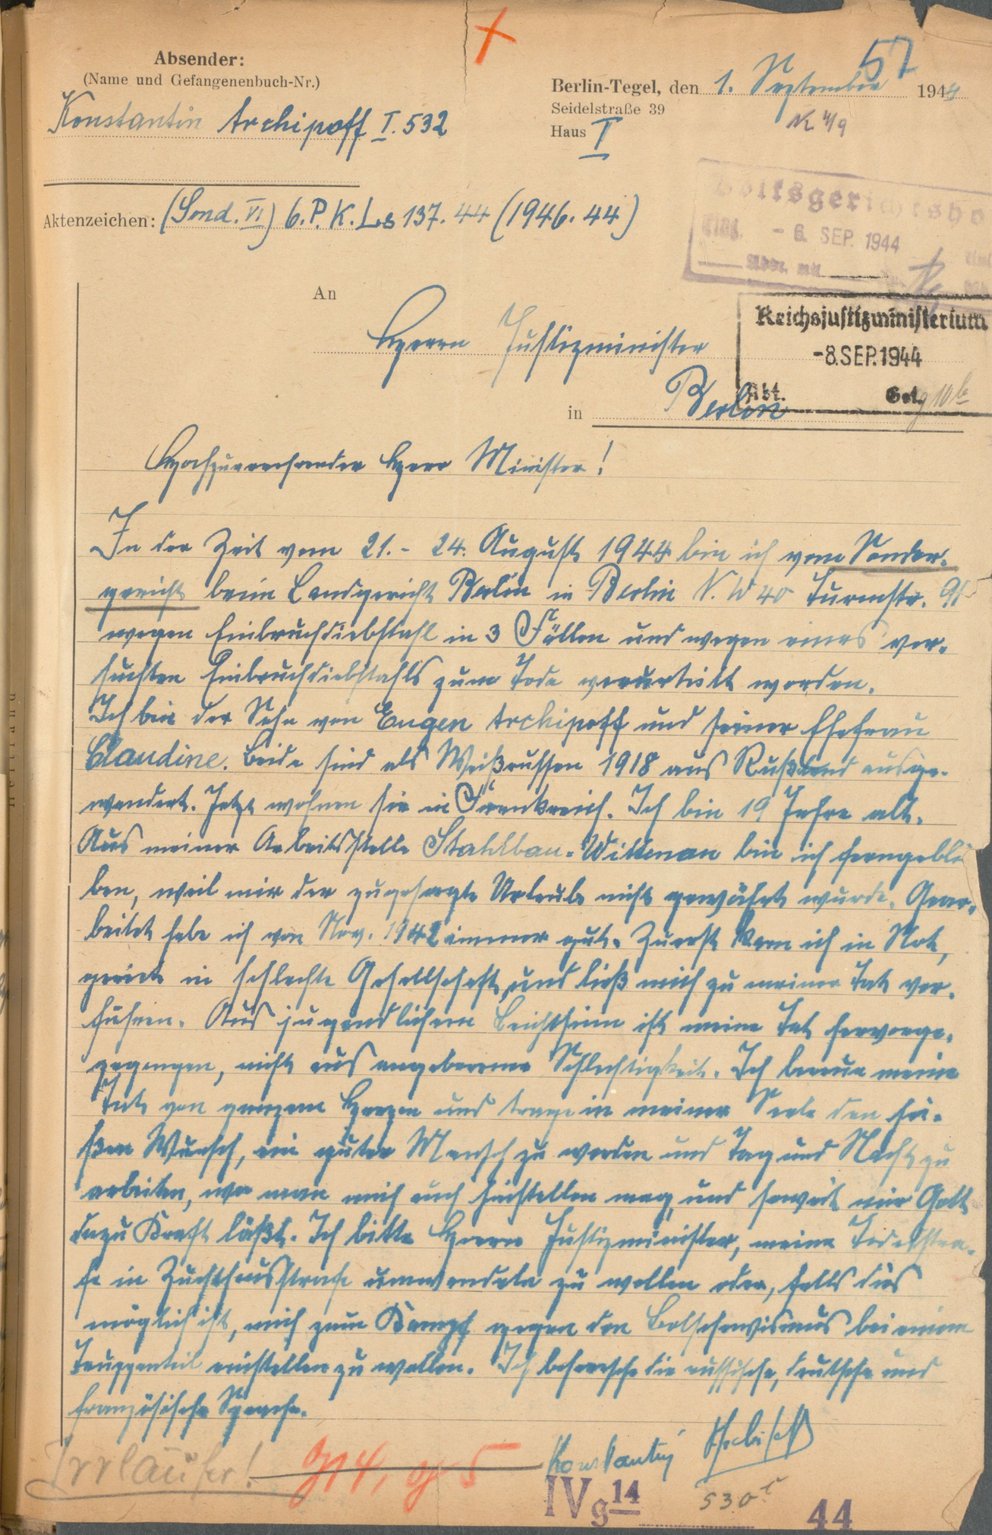 Absender:
(Name und Gefangenenbuch-Nr.)
Konstantin Archipoff I. 532
57
Berlin-Tegel, den 1. September 1944
Seidelstraße 39
Haus I
Aktenzeichen: (Sond. VI) 6. P. K. Ls 137. 44 (1946. 44)
Volksgerichtshof
- 6. SEP. 1944
Reichsjustizministerium
-8.SEP.1944
Abt.
An
Herrn Justizminister
in Berlin
Hochzuverehrender Herr Minister!
In der Zeit vom 21. - 24. August 1944 bin ich vom Sonder-
gericht beim Landgericht Berlin in Berlin N. W 40 Turmstr. 91
wegen Einbruchdiebstahl in 3 Fällen und wegen eines ver-
suchten Einbruchdiebstahls zum Tode verurteilt worden.
Ich bin der Sohn von Eugen Archipoff und seiner Ehefrau
Claudine. Beide sind als Weißrussen 1918 aus Rußland ausge-
wandert. Jetzt wohnen sie in Frankreich. Ich bin 19 Jahre alt.
Aus meiner Arbeitsstelle Stahlbau-Wittman bin ich ferngeblie
ben, weil mir der zugesagte Urlaub nicht gewährt wurde. Gear-
beitet habe ich von Nov. 1942 immer gut. Zuerst kam ich in Not,
geriet in schlechte Gesellschaft, und ließ mich zu meiner Tat ver-
führen. Aus jugendlichem Leichtsinn ist meine Tat hervorge-
gegangen, nicht aus angeborener Schlechtigkeit. Ich bereue meine
Tat von ganzem Herzen und trage in meiner Seele den hei-
ßen Wunsch, ein guter Mensch zu werden und Tag und Nacht zu
arbeiten, wo man mich auch hinstellen mag, und soweit mir Gott
dazu Kraft läßt. Ich bitte Herrn Justizminister, meine Todesstra-
fe in Zuchthausstrafe umwandeln zu wollen oder, falls dies
möglich ist, mich zum Kampf gegen den Bolschewismus bei einem
Truppenteil einstellen zu wollen. Ich beherrsche die russische, deutsche und
französische Sprache.
Irrläufer!
Konstantin Archipoff
IV g 14
530
44